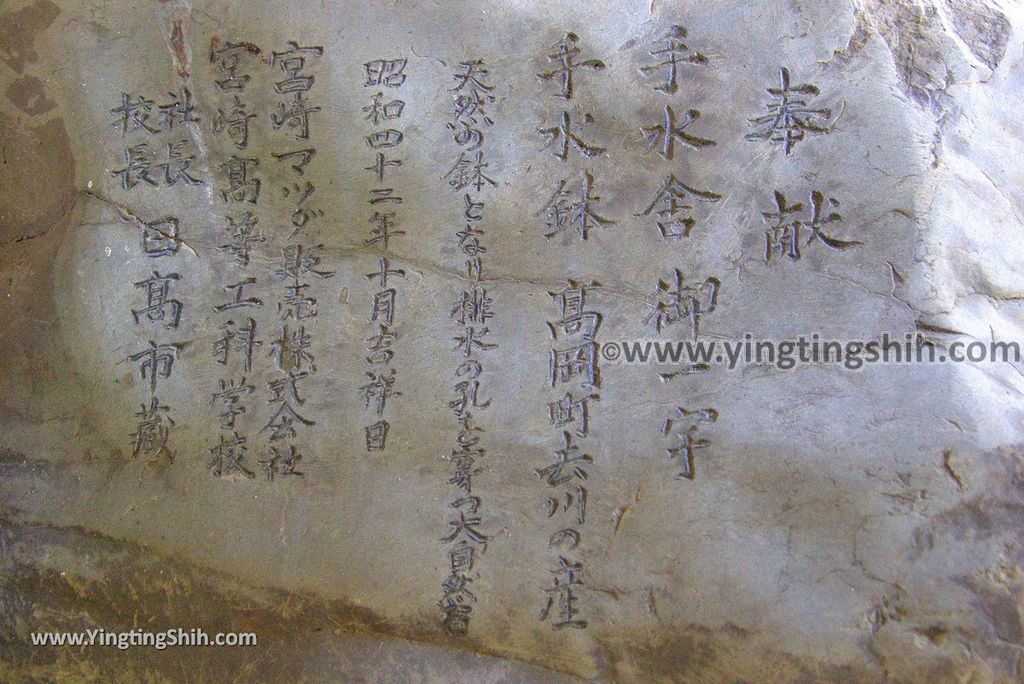 奉献
手水舎 御一宇
手水鉢 高岡町去川の産
天然の鉢となり排水の孔を穿つ大自然岩
昭和四十二年十月吉祥日
宮崎マツダ販売株式会社
宮崎高等工科学校
社長
校長 日高市蔵
©www.yingtingshih.com
www.YingtingShih.com